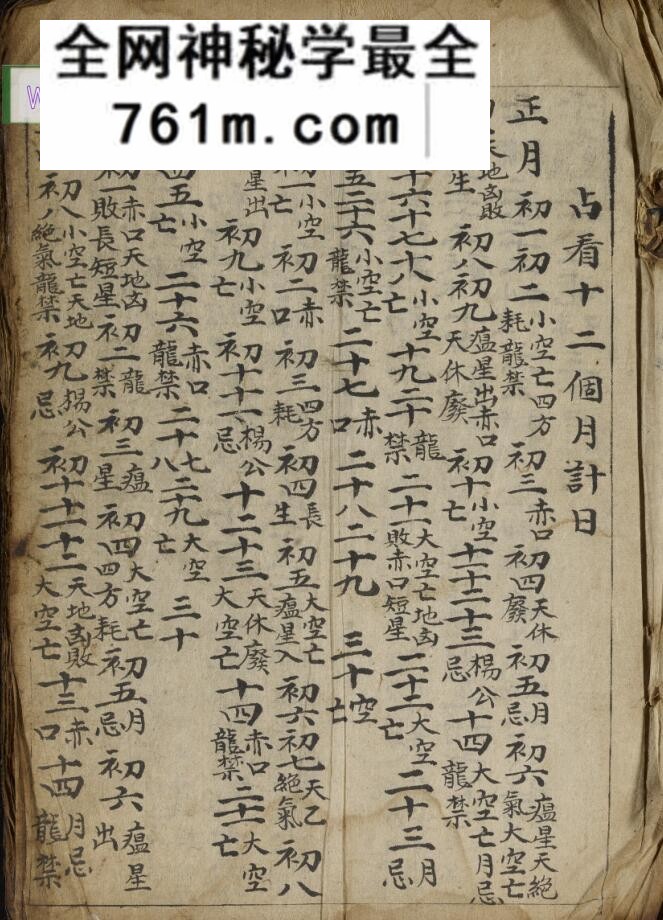 全网神秘学最全
761m.com
W
占看十二個月計日
正月初一初二小空亡四方耗龍禁初三赤口初四天休廢初五月忌初六瘟星天絶氣大空亡
天地凶敗生初八初九瘟星出赤口天休廢初十小空亡十一十二十三楊公忌十四大空亡月忌龍禁
十六十七十八小空亡十九二十龍禁二十一大空亡地凶敗赤口短星二十二大空亡二十三月忌
五二十六小空亡龍禁二十七赤口二十八二十九三十空亡
初一小空亡初二赤口初三四方耗初四長生初五大空亡瘟星入初六初七天乙絕氣初八
星出初九小空亡初十十一楊公忌十二十三天休廢大空亡十四赤口龍禁二十一大空亡
四五小空亡二十六赤口龍禁二十七二十八二十九大空亡三十
初一赤口天地凶敗長短星初二龍禁初三瘟星初四大空亡四方耗初五月忌初六瘟星出
初八小空亡天地絕氣龍禁初九楊公忌初十十一十二天地凶敗大空亡十三赤口十四月忌龍禁